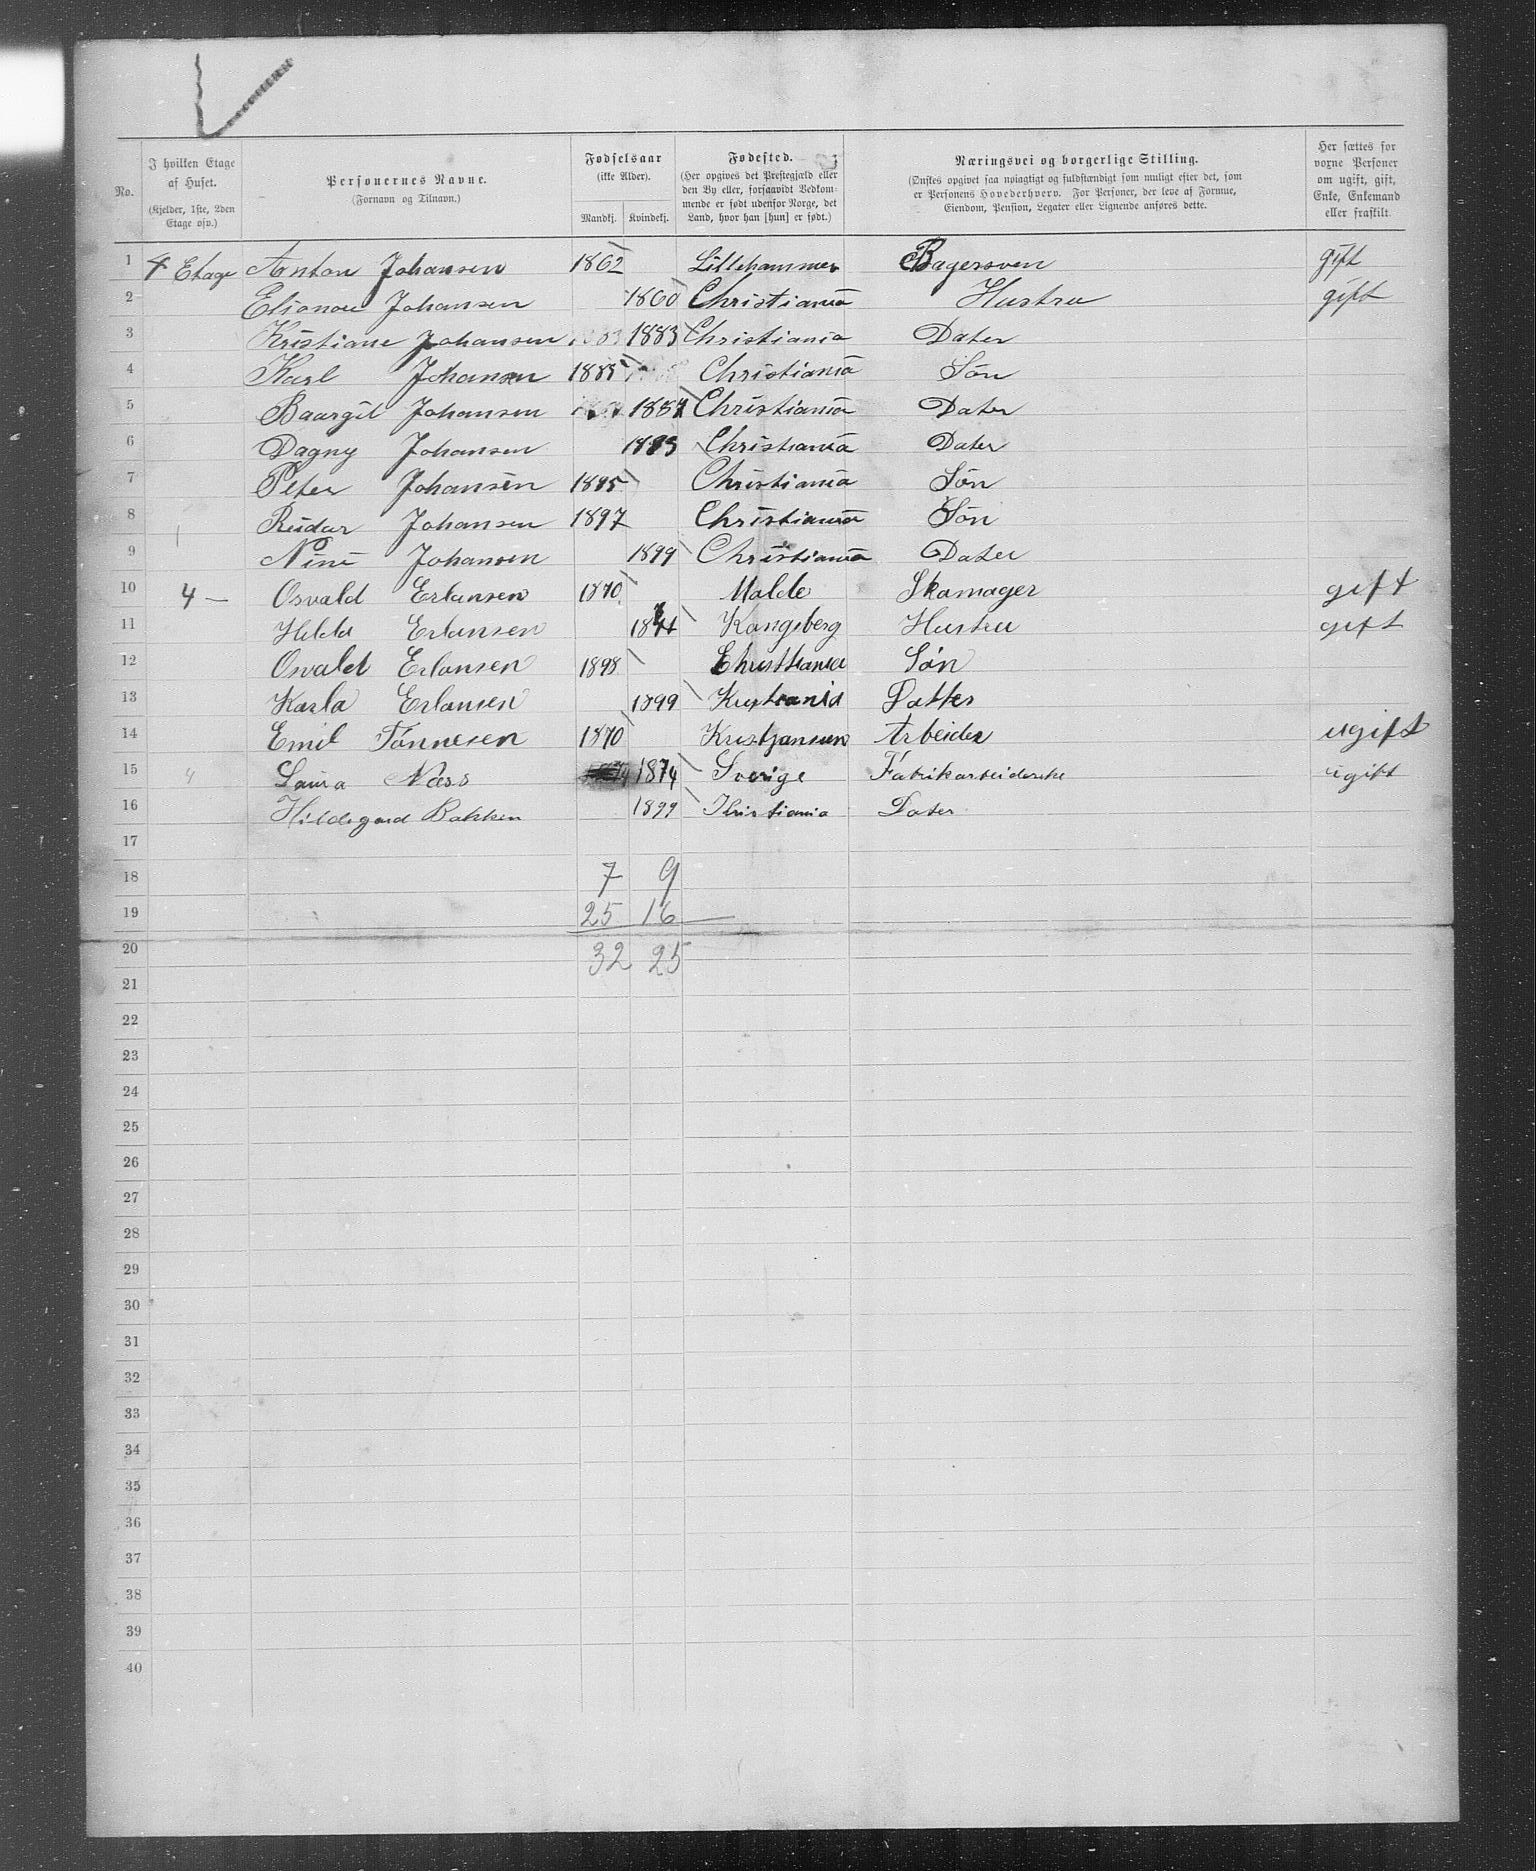 No.
I hvilken Etage af Huset. (Kjelder, 1ste, 2den Etage osv.)
Personernes Navne. (Fornavn og Tilnavn.)
Fødselsaar (ikke Alder). Mandkj. Kvindekj.
Fødested. (Her opgives det Prestegjæld eller den By eller, forsaavidt Vedkommende er født udenfor Norge, det Land, hvor han [hun] er født.)
Næringsvei og borgerlige Stilling. (Ønskes opgivet saa nøiagtigt og fuldstændigt som muligt efter det, som er Personens Hovederhverv. For Personer, der leve af Formue, Eiendom, Pension, Legater eller Lignende anføres dette.
Her sættes for voxne Personer om ugift, gift, Enke, Enkemand eller fraskilt.
1 4 Etage Anton Johansen 1862 Lillehammer Bagersven gift
2 Elionore Johansen 1860 Christiania Hustru gift
3 Kristiane Johansen 1883 Christiania Dater
4 Karl Johansen 1885 Christiania Søn
5 Baargil Johansen 1887 Christiania Dater
6 Dagny Johansen 1893 Christiania Dater
7 Peter Johansen 1895 Christiania Søn
8 Reidar Johansen 1897 Christiania Søn
9 Nini Johansen 1899 Christiania Dater
10 4 — Osvald Erlansen 1870 Molde Skomager gift
11 Hilda Erlansen Kongsberg Hustru gift
12 Osvald Erlansen 1898 Christiania Søn
13 Karla Erlansen 1899 Kristania Datter
14 Emil Tønnesen 1870 Arbeider ugift
15 4 Laura Næss 1874 Sverige Fabrikarbeiderske ugift
16 Hildegard Bakken 1899 Kristiania Dater
17
18 7 9
19 25 16
20 32 25
21
22
23
24
25
26
27
28
29
30
31
32
33
34
35
36
37
38
39
40